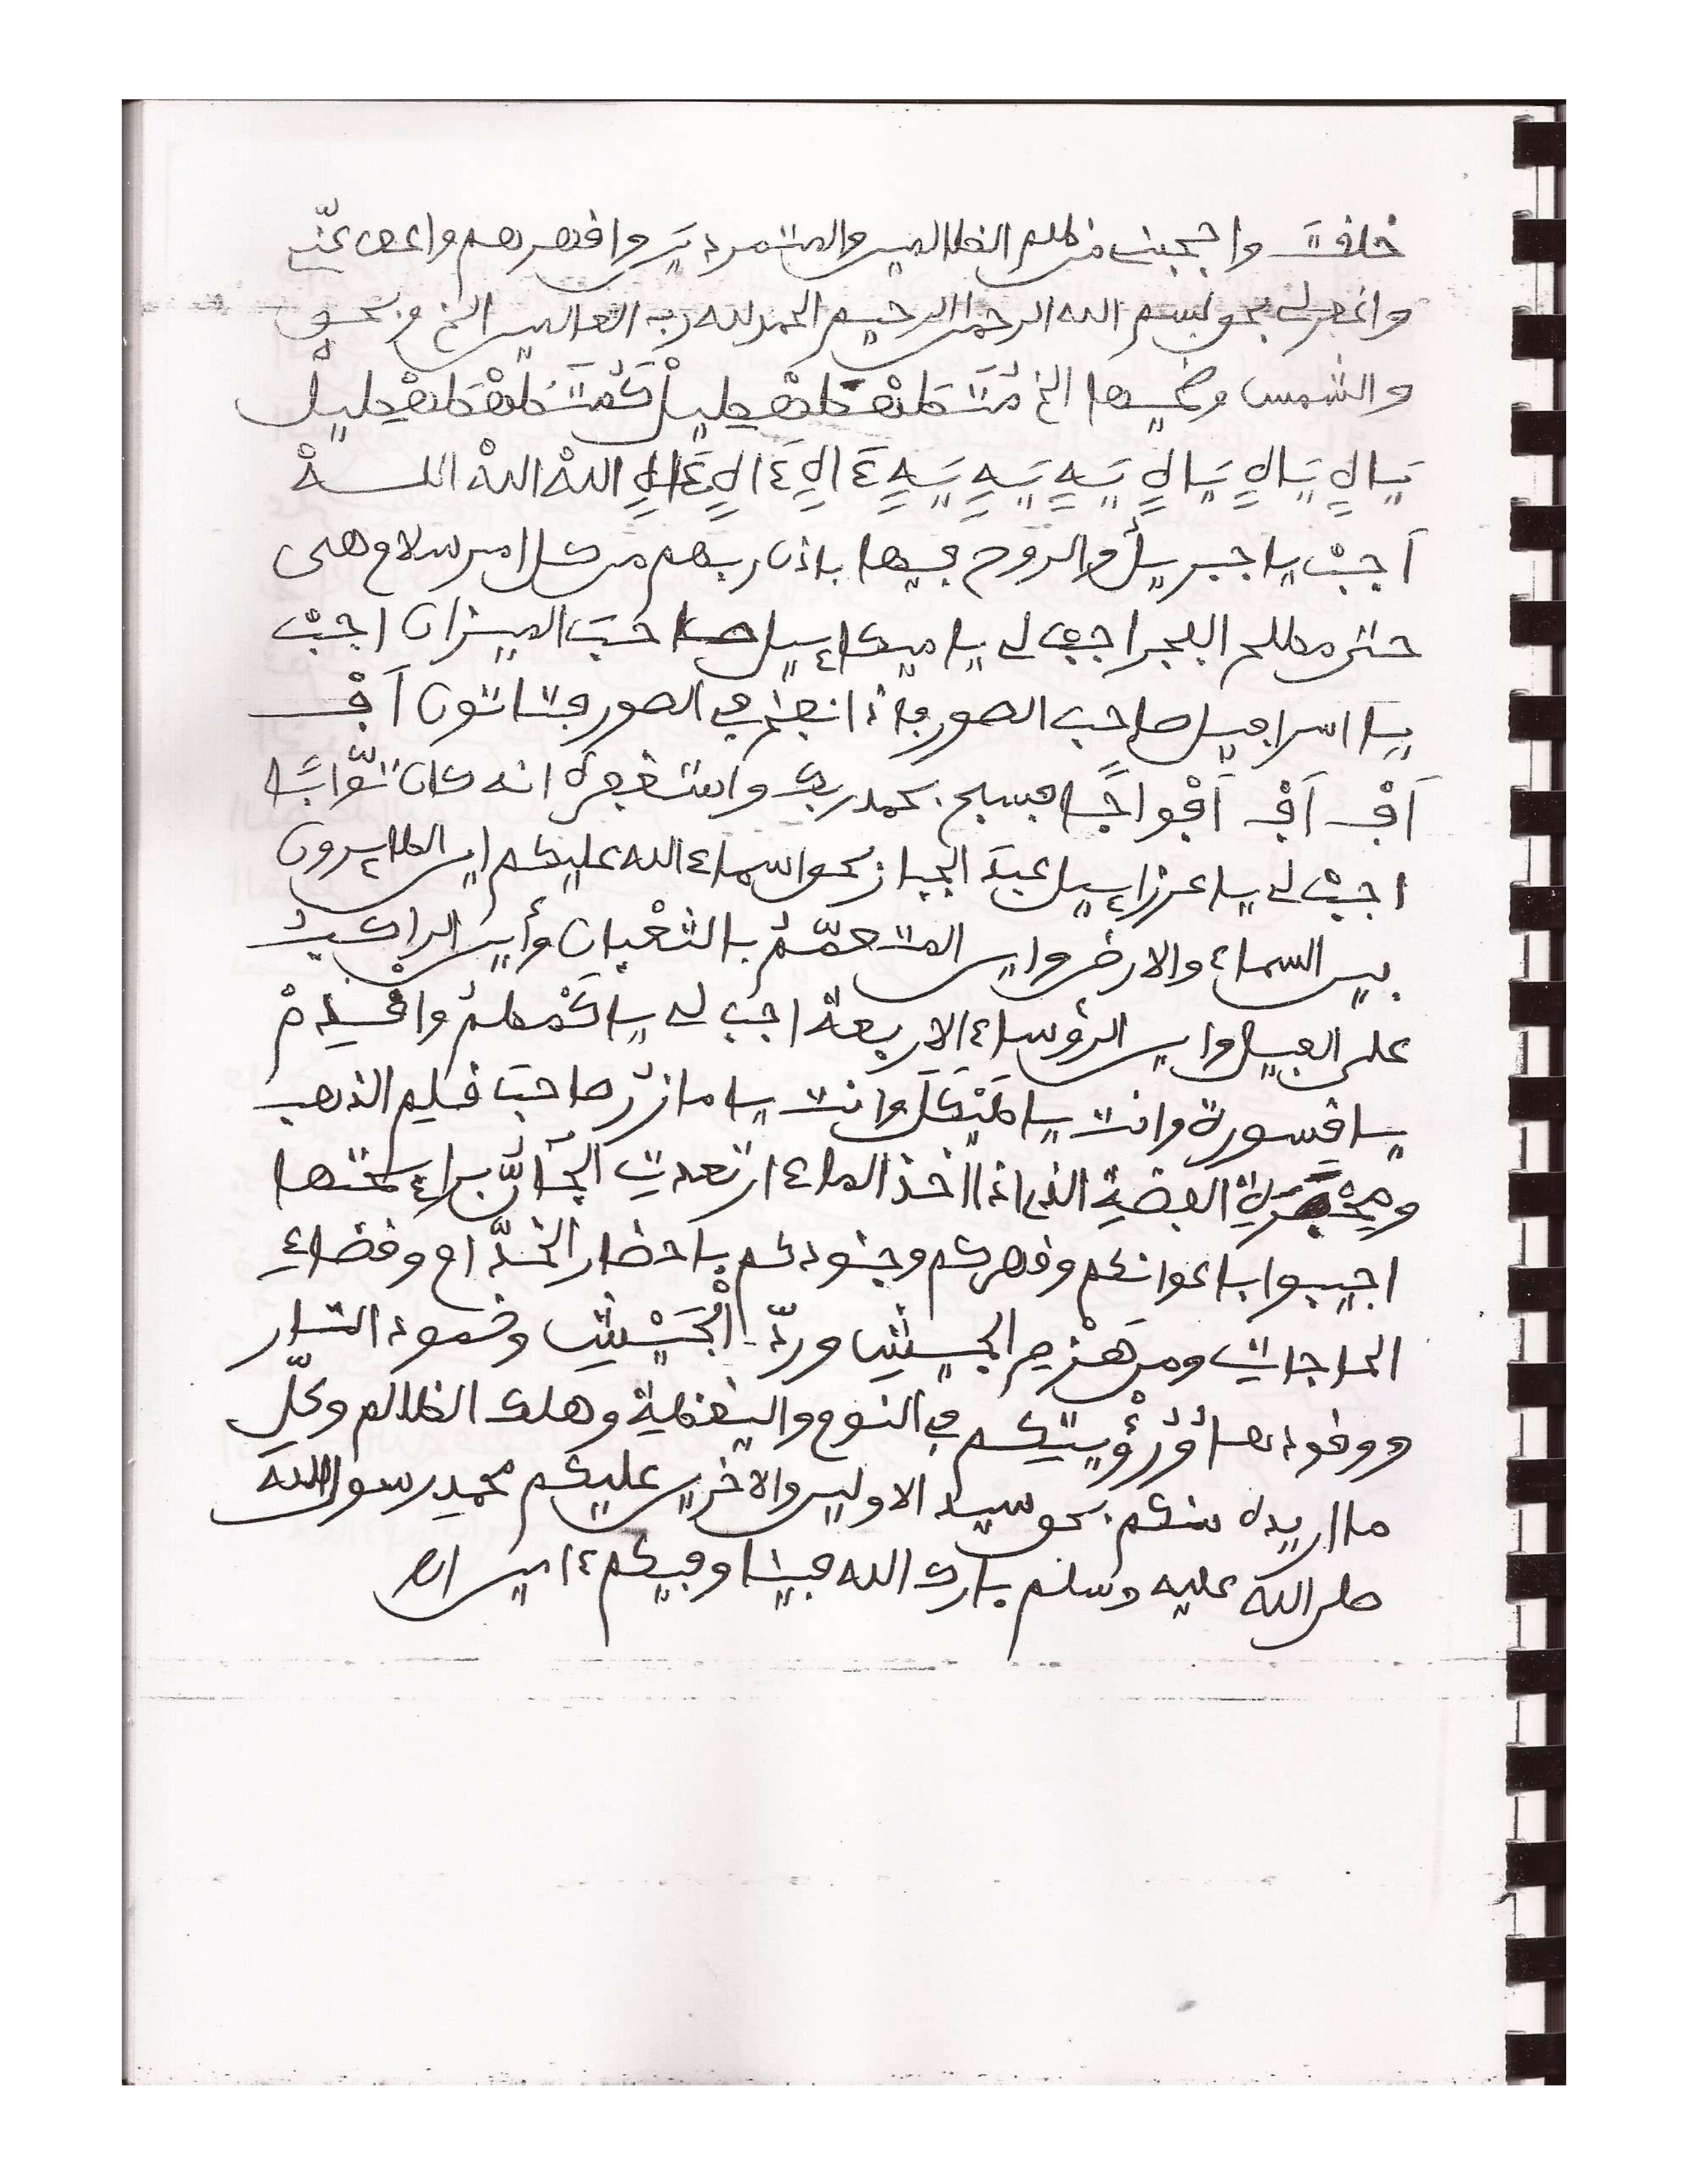 خلقك واحجبني من ظلم الظالمين والمتمردين واقهرهم واعف عنّي
واغفرلي بحق بسم الله الرحمن الرحيم الحمد لله رب العالمين الخ وبحق
والشمس وضحيها الخ
يَاالٍ يَاالٍ يَاالٍ يَهٍ يَهٍ يَهٍ ءَالٍ ءَالٍ ءَالٍ اللهْ اللهْ اللــهْ
أجبْ ياجبريلُ والروح فيها باذن ربهم من كل امر سلام هى
حتى مطلع الفجر اجبْ لي ياميكاءيل صاحبَ الميزان اجبْ
يا اسرافيل صاحب الصور فاذا نفخ في الصور فتاتون أفْ
أفْ أفْ أفْواجًا فسبح بحمد ربك واستغفره انه كان توّابًا
اجبْ لي ياعزراءيل عبدَ الجبار بحق اسماء الله عليكم اين الطاءيرون
بين السماء والارض واين المتعمّمُ بالثعْبان وأين الراكبُ
على الفيل واين الرؤساء الاربعة اجب لي ياكمْطمُ واقْسِمْ
ياقسورة وانت ياطَيْكَل وانت يامازرُ صاحبَ قليم الذهب
الفضةِ الذي اذا اخذ الماء ارتعدتِ الجآنُّ براءيحتها
اجيبوا باعوانكم وقهركم وجنودكم باحضار الخدّام وقضاءِ
الحاجاتِ ومن هزم الجيشِ وردّ الْجَيْشِ وخمود النار
ووقودها وَرُؤْيتكم في النوم واليقظة وهلك الظالم وكلِّ
ما اريده منكم بحق سيد الاولين والاخرين عليكم محمدٍ رسول اللهَ
صلى الله عليه وسلم بارك الله فينا وفيكم ءامين اهـ